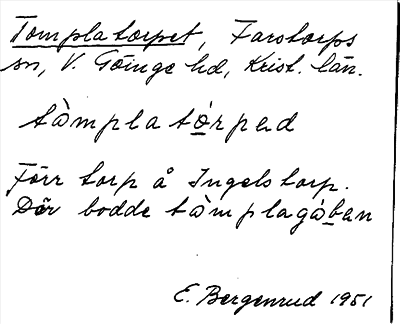 Tomplatorpet, Farstorps
sn, V. Göinge hd, Krist. län.
tåmplatórped
Förr torp å Ingelstorp.
Där bodde tåmplagóben
E. Bergenrud 1951